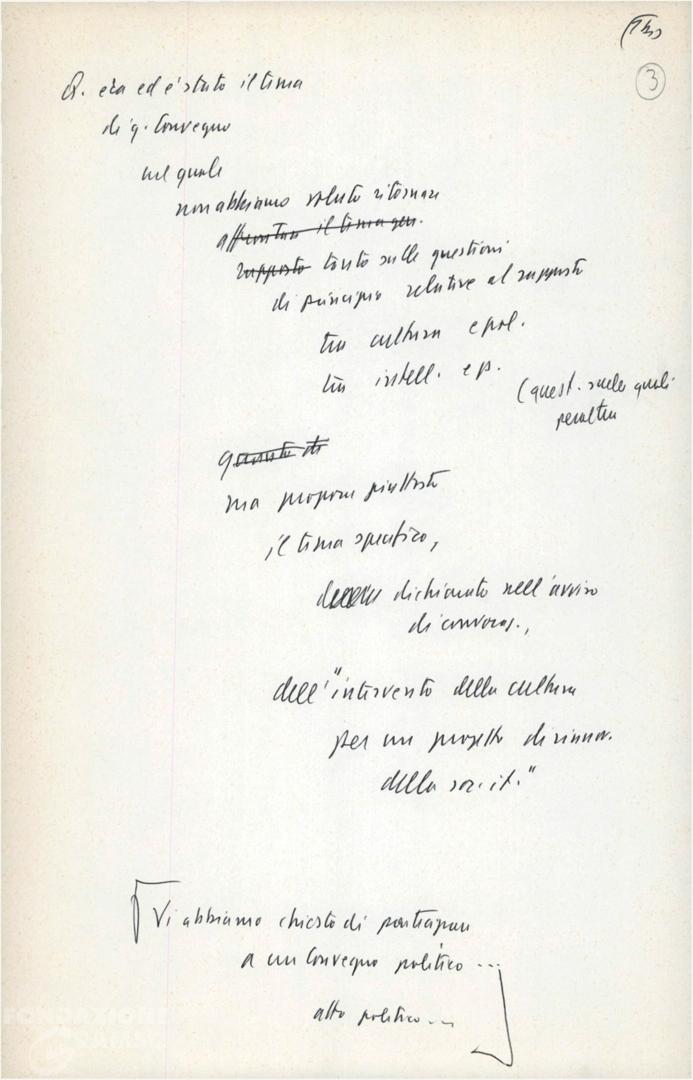 3
Q. era ed è stato il tema
di q. Convegno
nel quale
non abbiamo voluto ritornare
affrontare il tema gen.
rapporto tanto sulle questioni
di principio relative al rapporto
tra cultura e pol.
tra intell. e p.
(quest. sulle quali
peraltro
ma proporre piuttosto
il tema specifico,
dichiarato nell'avviso
di convocaz.,
dell'"intervento della cultura
per un progetto di rinnov.
della soc. it."
Vi abbiamo chiesto di partecipare
a un Convegno politico ...
atto politico ...
FONDAZIONE